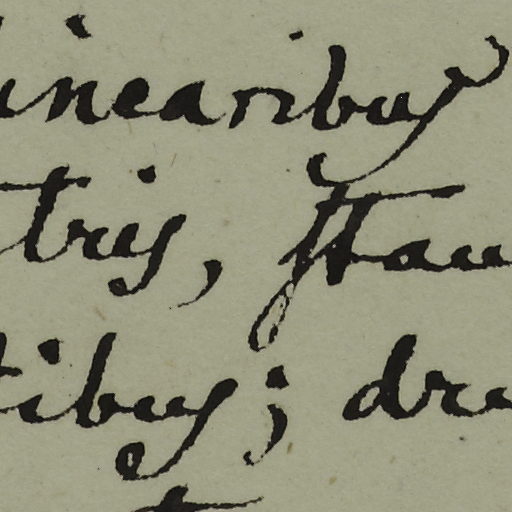 linearibus
tris, stam
tibus; dru